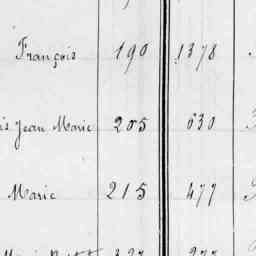 François 190 1378
is Jean Marie 205 630
Marie 215 477